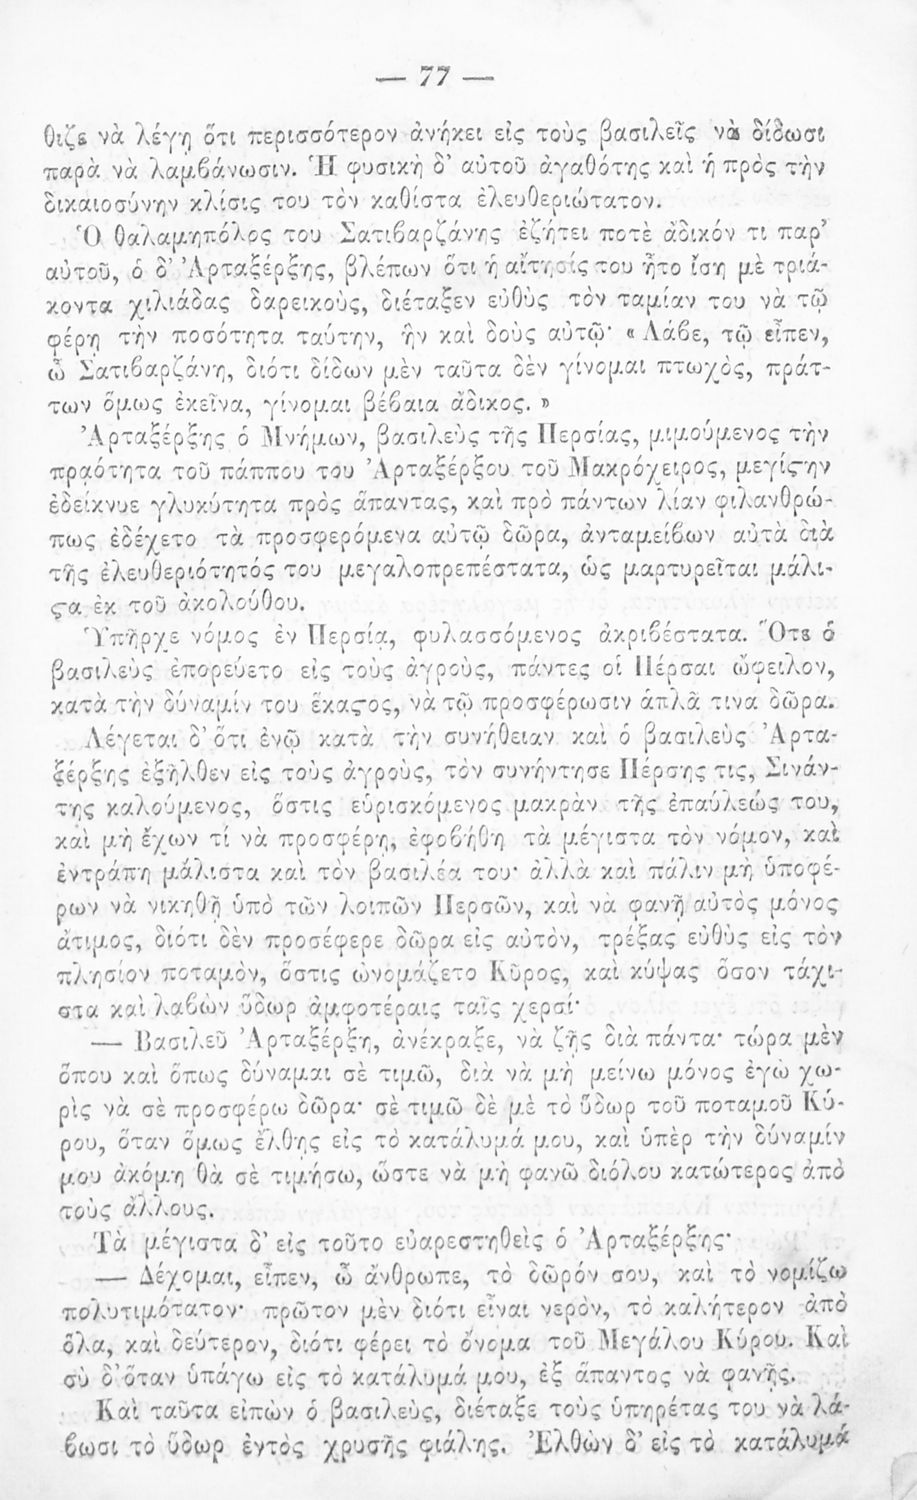 — 77 —
θιζε νὰ λέγῃ ὅτι περισσότερον ἀνήκει εἰς τοὺς βασιλεῖς νὰ δίδωσι
παρὰ νὰ λαμβάνωσιν. Ἡ φυσικὴ δ' αὐτοῦ ἀγαθότης καὶ ἡ πρὸς τὴν
δικαιοσύνην κλίσις του τὸν καθίστα ἐλευθεριώτατον.
Ὁ θαλαμηπόλος του Σατιβαρζάνης ἐζήτει ποτὲ ἄδικόν τι παρ'
αὐτοῦ, ὁ δ' Ἀρταξέρξης, βλέπων ὅτι ἡ αἴτησίς του ἦτο ἴση μὲ τριά-
κοντα χιλιάδας δαρεικοὺς, διέταξεν εὐθὺς τὸν ταμίαν του νὰ τῷ
φέρῃ τὴν ποσότητα ταύτην, ἣν καὶ δοὺς αὐτῷ· « Λάβε, τῷ εἶπεν,
ὦ Σατιβαρζάνη, διότι δίδων μὲν ταῦτα δὲν γίνομαι πτωχὸς, πράτ-
των ὅμως ἐκεῖνα, γίνομαι βέβαια ἄδικος. »
Ἀρταξέρξης ὁ Μνήμων, βασιλεὺς τῆς Περσίας, μιμούμενος τὴν
πραότητα τοῦ πάππου του Ἀρταξέρξου τοῦ Μακρόχειρος, μεγίϛην
ἐδείκνυε γλυκύτητα πρὸς ἅπαντας, καὶ πρὸ πάντων λίαν φιλανθρώ-
πως ἐδέχετο τὰ προσφερόμενα αὐτῷ δῶρα, ἀνταμείβων αὐτὰ διὰ
τῆς ἐλευθεριότητός του μεγαλοπρεπέστατα, ὡς μαρτυρεῖται μάλι-
ϛα ἐκ τοῦ ἀκολούθου.
Ὑπῆρχε νόμος ἐν Περσίᾳ, φυλασσόμενος ἀκριβέστατα. Ὅτε ὁ
βασιλεὺς ἐπορεύετο εἰς τοὺς ἀγροὺς, πάντες οἱ Πέρσαι ὤφειλον,
κατὰ τὴν δύναμίν του ἕκαϛος, νὰ τῷ προσφέρωσιν ἁπλᾶ τινα δῶρα.
Λέγεται δ' ὅτι ἐνῷ κατὰ τὴν συνήθειαν καὶ ὁ βασιλεὺς Ἀρτα-
ξέρξης ἐξῆλθεν εἰς τοὺς ἀγροὺς, τὸν συνήντησε Πέρσης τις, Σινάν-
της καλούμενος, ὅστις εὑρισκόμενος μακρὰν τῆς ἐπαύλεώς του,
καὶ μὴ ἔχων τί νὰ προσφέρῃ, ἐφοβήθη τὰ μέγιστα τὸν νόμον, καὶ
ἐντράπη μάλιστα καὶ τὸν βασιλέα του· ἀλλὰ καὶ πάλιν μὴ ὑποφέ-
ρων νὰ νικηθῇ ὑπὸ τῶν λοιπῶν Περσῶν, καὶ νὰ φανῇ αὐτὸς μόνος
ἄτιμος, διότι δὲν προσέφερε δῶρα εἰς αὐτὸν, τρέξας εὐθὺς εἰς τὸν
πλησίον ποταμὸν, ὅστις ὠνομάζετο Κῦρος, καὶ κύψας ὅσον τάχι-
στα καὶ λαβὼν ὕδωρ ἀμφοτέραις ταῖς χερσί·
— Βασιλεῦ Ἀρταξέρξη, ἀνέκραξε, νὰ ζῇς διὰ πάντα· τώρα μὲν
ὅπου καὶ ὅπως δύναμαι σὲ τιμῶ, διὰ νὰ μὴ μείνω μόνος ἐγὼ χω-
ρὶς νὰ σὲ προσφέρω δῶρα· σὲ τιμῶ δὲ μὲ τὸ ὕδωρ τοῦ ποταμοῦ Κύ-
ρου, ὅταν ὅμως ἔλθῃς εἰς τὸ κατάλυμά μου, καὶ ὑπὲρ τὴν δύναμίν
μου ἀκόμη θὰ σὲ τιμήσω, ὥστε νὰ μὴ φανῶ διόλου κατώτερος ἀπὸ
τοὺς ἄλλους.
Τὰ μέγιστα δ' εἰς τοῦτο εὐαρεστηθεὶς ὁ Ἀρταξέρξης·
— Δέχομαι, εἶπεν, ὦ ἄνθρωπε, τὸ δῶρόν σου, καὶ τὸ νομίζω
πολυτιμότατον· πρῶτον μὲν διότι εἶναι νερὸν, τὸ καλήτερον ἀπὸ
ὅλα, καὶ δεύτερον, διότι φέρει τὸ ὄνομα τοῦ Μεγάλου Κύρου. Καὶ
σὺ δ' ὅταν ὑπάγω εἰς τὸ κατάλυμά μου, ἐξ ἅπαντος νὰ φανῇς.
Καὶ ταῦτα εἰπὼν ὁ βασιλεὺς, διέταξε τοὺς ὑπηρέτας του νὰ λά-
βωσι τὸ ὕδωρ ἐντὸς χρυσῆς φιάλης. Ἐλθὼν δ' εἰς τὸ κατάλυμά